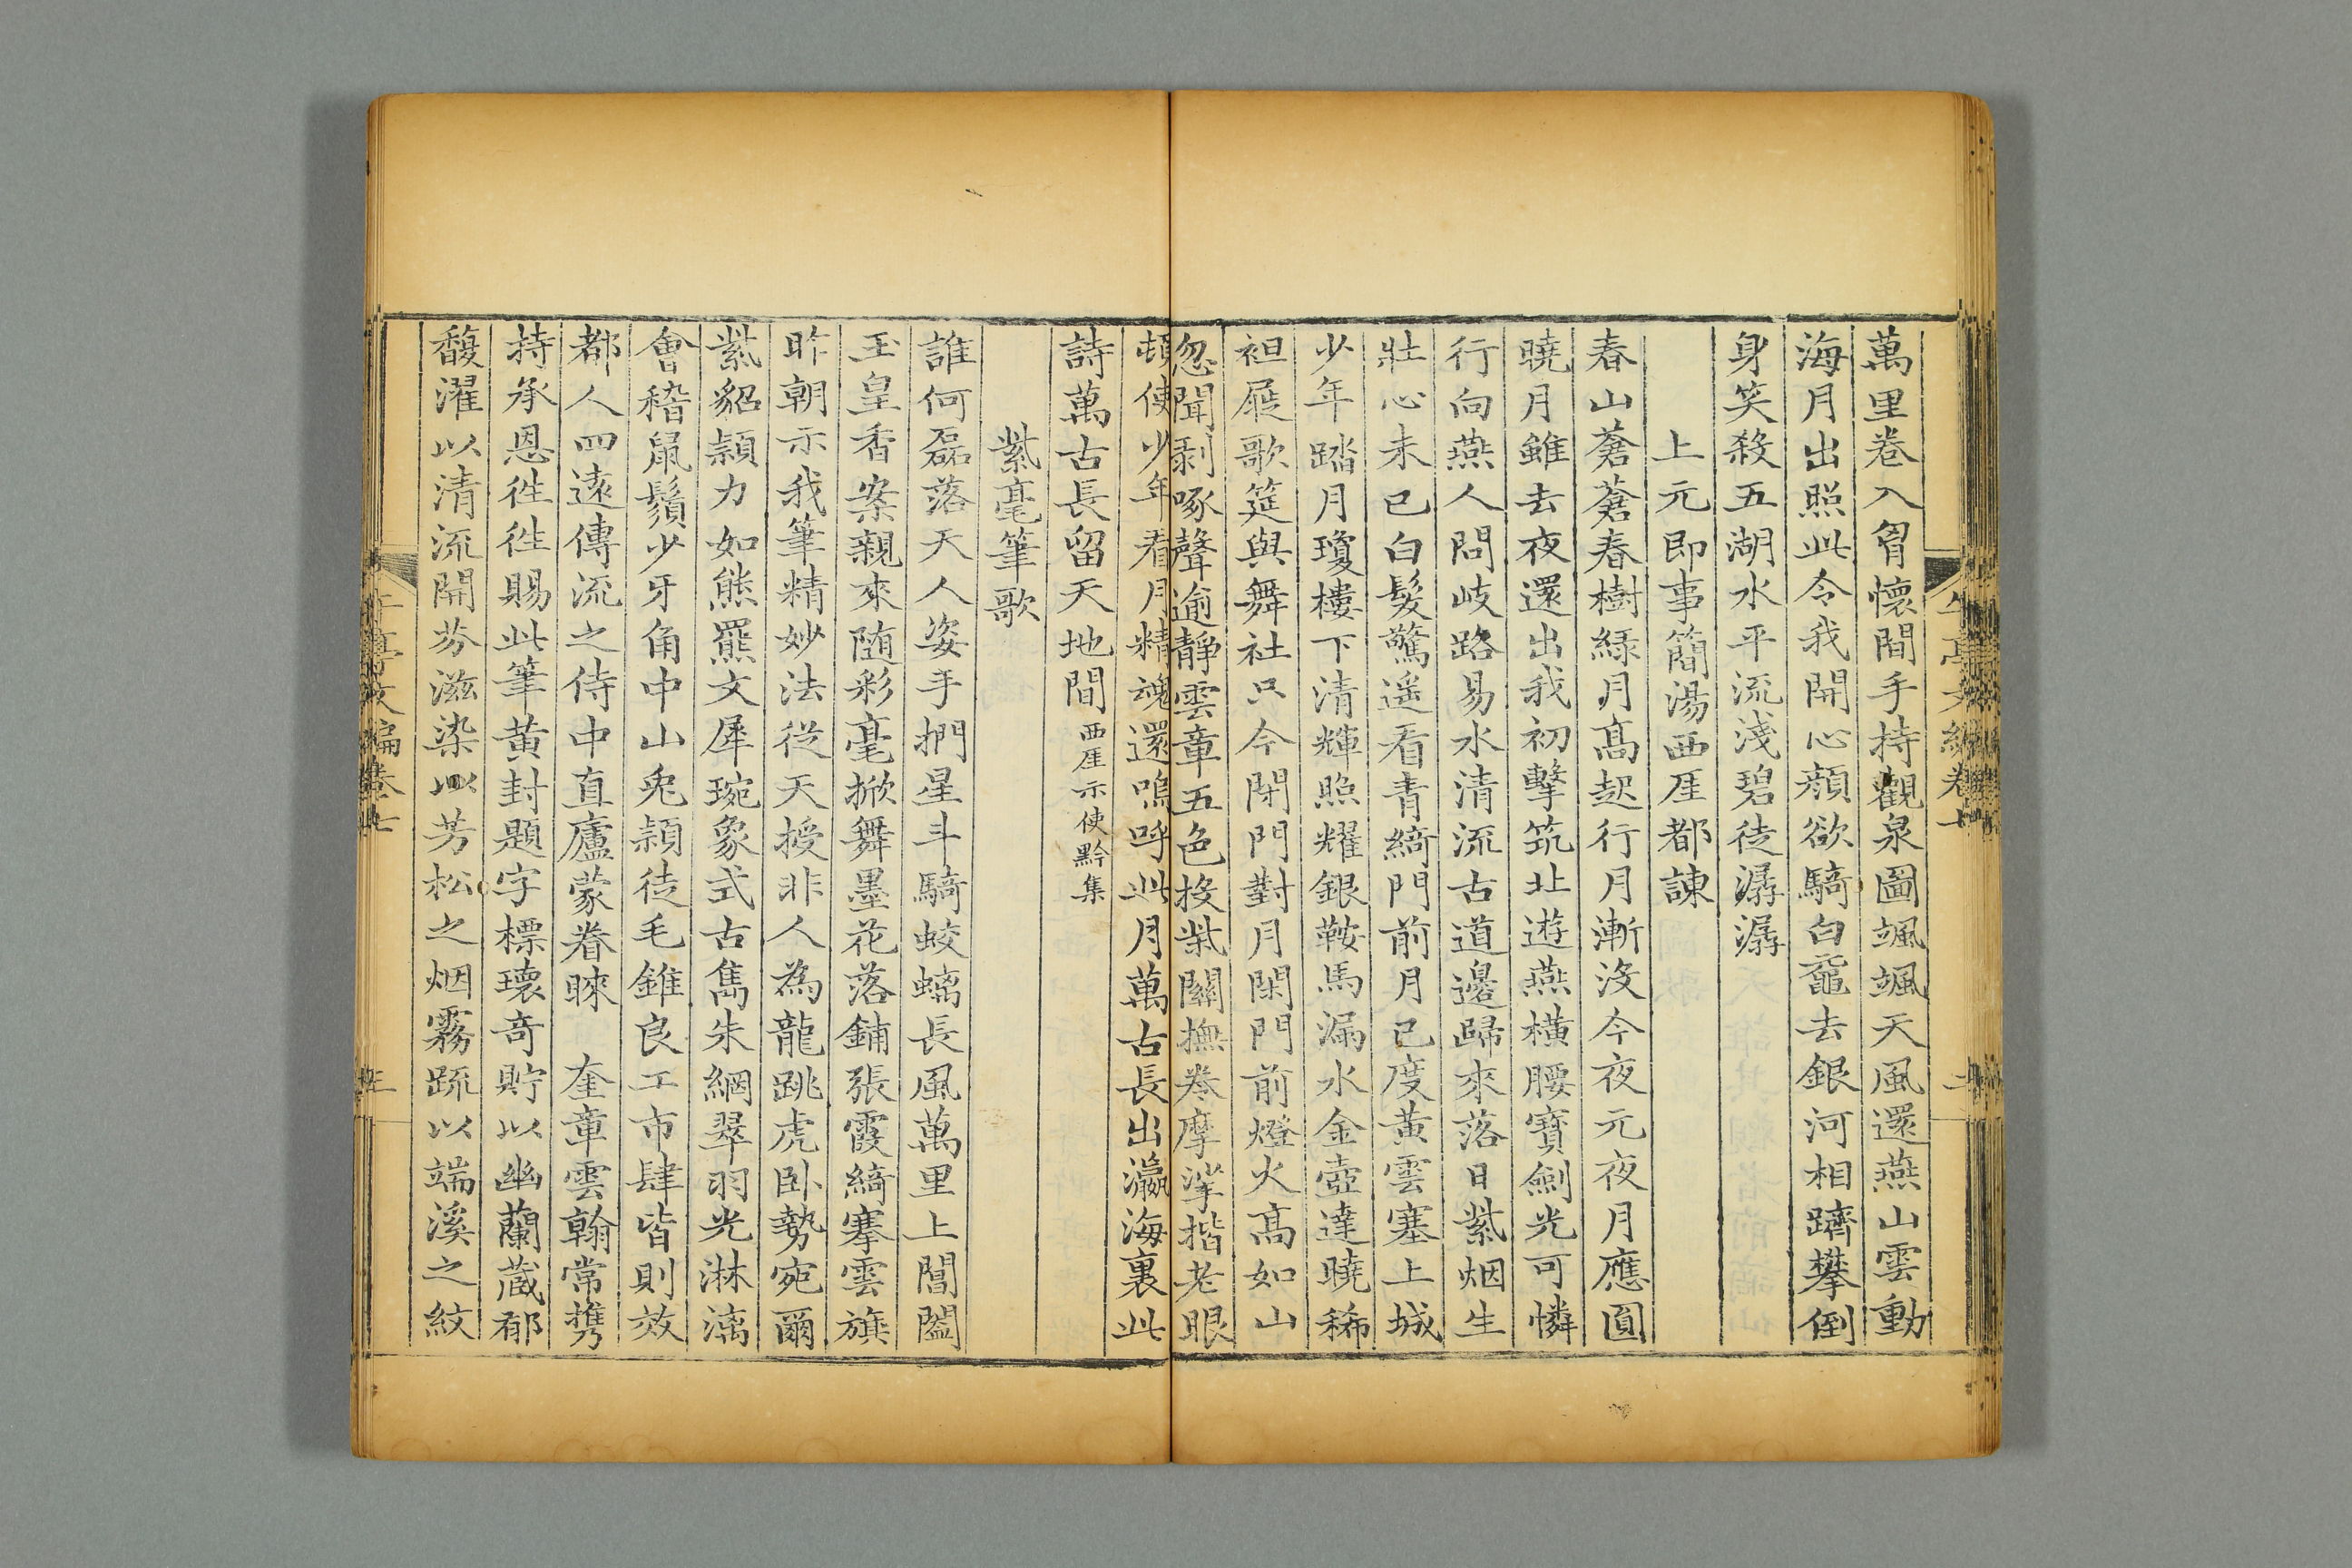 萬里卷入胷懷間手持觀泉圖颯颯天風還燕山雲動
海月出照此令我開心顏欲騎白黿去銀河相躋攀倒
身笑殺五湖水平流淺碧徒潺潺
上元即事簡湯西厓都諫
春山蒼蒼春樹綠月高起行月漸沒今夜元夜月應圓
曉月雖去夜還出我初擊筑北遊燕橫腰寶劍光可憐
行向燕人問岐路易水清流古道邊歸來落日紫烟生
壯心未已白髮驚遥看青綺門前月已度黃雲塞上城
少年踏月瓊樓下清輝照耀銀鞍馬漏水金壺達曉稀
袒屣歌筵與舞社只今閉門對月閑門前燈火高如山
忽聞剥啄聲逾靜雲章五色投柴關撫卷摩挲揩老眼
頓使少年看月精魂還嗚呼此月萬古長出瀛海裏此
詩萬古長留天地間西厓示使黔集
紫毫筆歌
誰何磊落天人姿手捫星斗騎蛟螭長風萬里上閶闔
玉皇香案親來随彩毫掀舞墨花落鋪張霞綺搴雲旗
昨朝示我筆精妙法從天授非人為龍跳虎卧勢宛爾
紫貂頴力如熊羆文犀琬象式古雋朱綱翠羽光淋漓
會稽鼠鬚少牙角中山兎頴徒毛錐良工市肆皆則效
都人四遠傳流之侍中直廬蒙眷睞 奎章雲翰常攜
持承恩徃徃賜此筆黃封題字標瓌奇貯以幽蘭蕆郁
馥濯以清流開芬滋染以芳松之烟霧疏以端溪之紋
午亭文編卷七